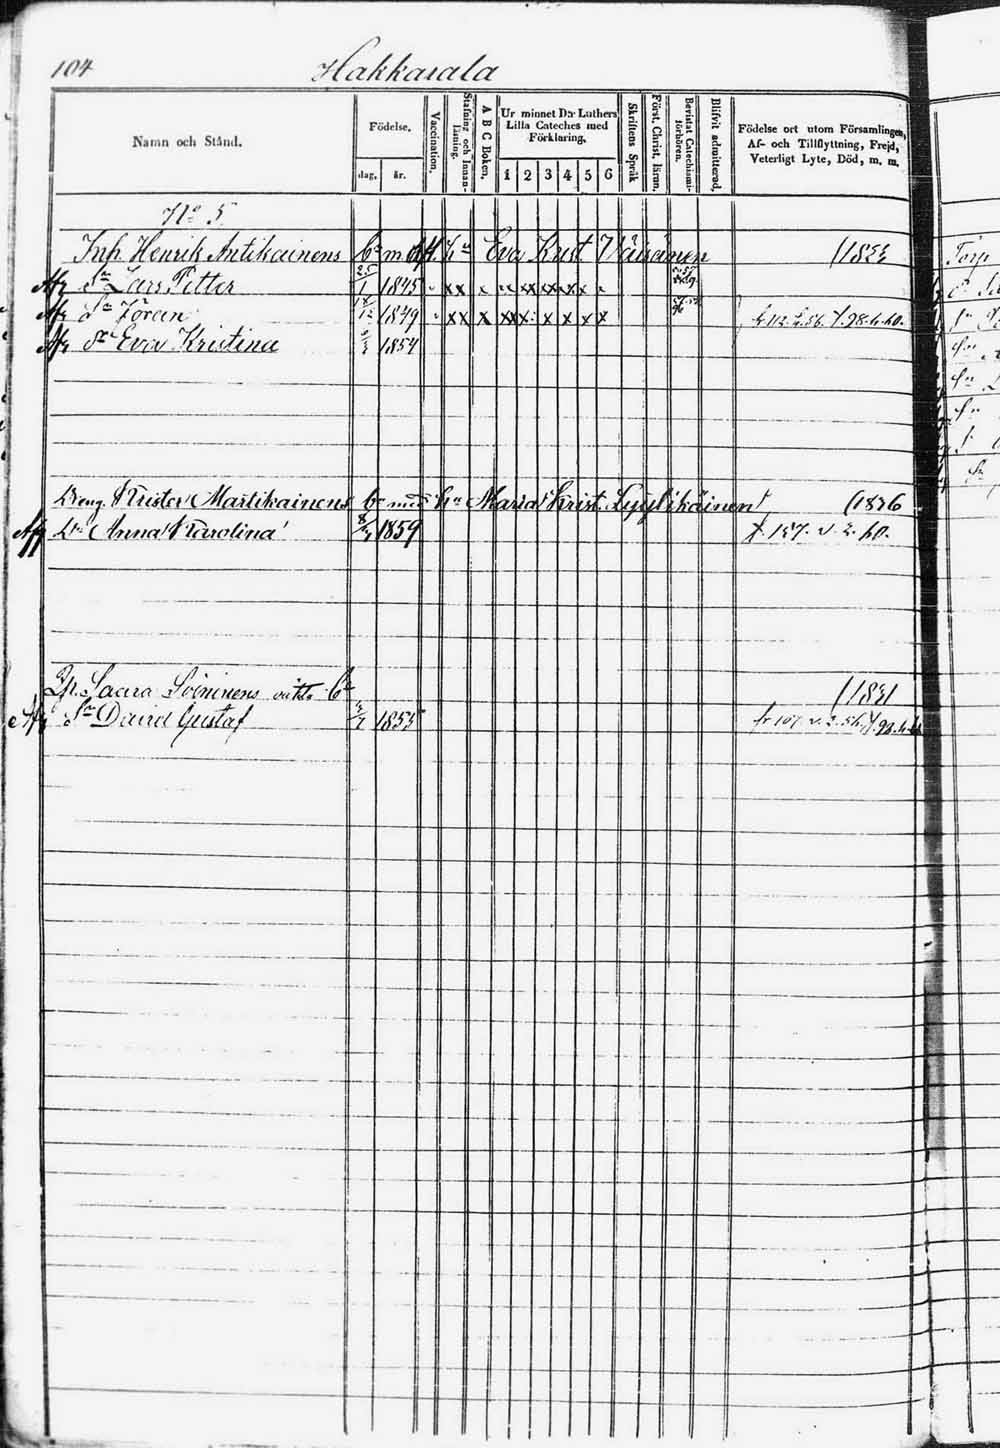 104 Hakkarala
Namn och Stånd.
Födelse.
dag. år.
Vaccination.
Stafning och Innanläsning.
A B C Boken.
Ur minnet D:r Luthers
Lilla Cateches med
Förklaring.
1 2 3 4 5 6
Skriftens Språk
Först. Christ. läran.
Bevistat Catechismiförhören.
Blifvit admitterad.
Födelse ort utom Församlingen,
Af- och Tillflyttning, Frejd,
Veterligt Lyte, Död, m. m.
No 5
Inh. Henrik Antikainens bn m. hu Eva Krist. Väisänen
Afg Sn Lars Petter 25/1 1845 x x x x x x x x
Afg Sn Zörein 1849 x x x x x x x x x
Afg Dr Eva Kristina 1854
Dreng. Krister Martikainens bn med hu Maria Krist. Lyylikäinen (1836
Afg Dr Anna Karolina 8/4 1859
Saara Soininens oäkta bn (1831
Afg Sn David Gustaf 1855